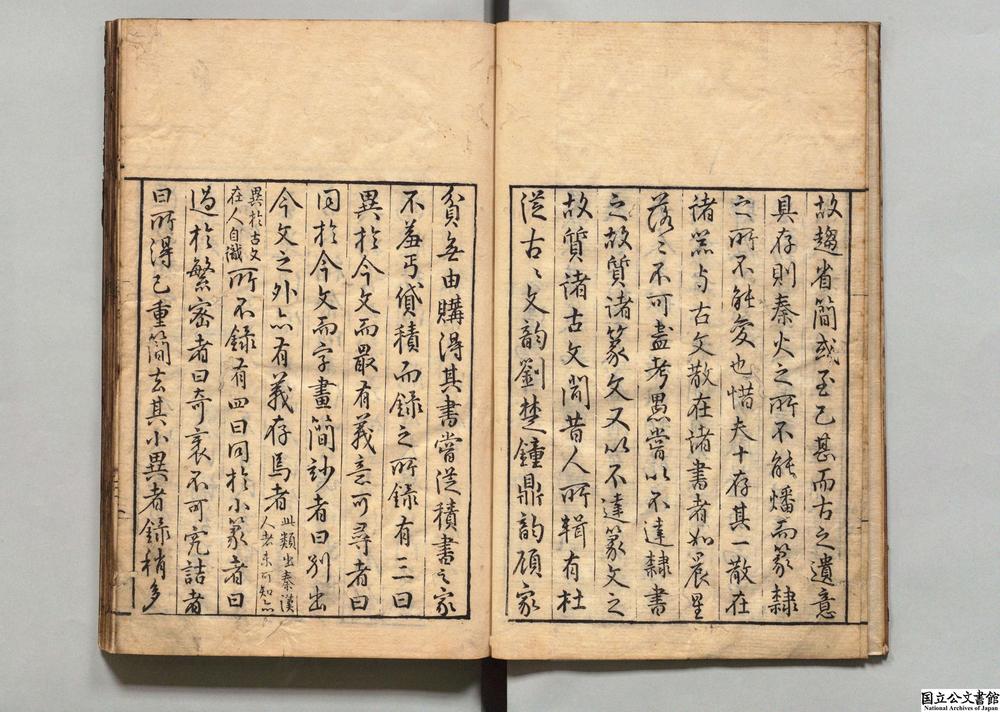 故趨省簡或至已甚而古之遺意
具存則秦火之所不能燔而篆隸
之所不能变也惜夫十存其一散在
諸器与古文散在諸書者如晨星
落〻不可盡考愚嘗以不達隸書
之故質諸篆文又以不達篆文之
故質諸古文間昔人所輯有杜
從古〻文韵劉楚鐘鼎韵顧家
貧無由購得其書嘗從積書之家
不羞丐貸積而録之所録有三曰
異於今文而最有義意可尋者曰
同於今文而字畫簡玅者曰別出
今文之外亦有義存焉者此類出秦漢
人者未可知亦
異於古文
在人自識所不录有四曰同於小篆者曰
過於繁密者曰奇衺不可究詰者
曰所得已重簡去其小異者録稍多
国立公文書館
National Archives of Japan